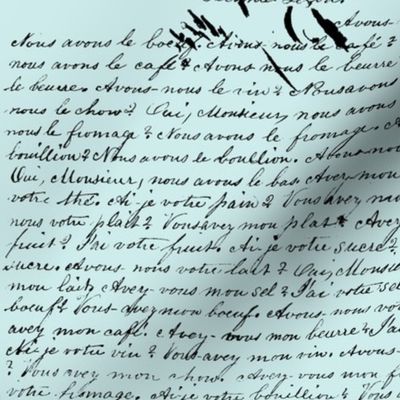 Avous-
Nous avons le boeuf. Avons-nous le café?
nous avons le café? Avons-nous le beurre
le beurre. Avons-nous le vin? Nous avons
nous le chow? Oui, Monsieur, nous avons
nous le fromage? Nous avons le fromage. A
bouillion? Nous avons le boullion. Avons-nou
Oui, Monsieur, nous avons le bas. Avez mon
votre thé. Ai-je votre pain? Vous avez ma
nous votre plait? Vous avez mon plat? Avez
fruit? J'ai votre fruit. Ai-je votre sucre?
sucre. Avons-nous votre lait? Oui, Monsie
mon lait, Avez-vous mon sel? J'ai votre sel
boeuf? Vous-avez mon boeuf. Avons-nous vot
avez mon café. Avez-vous mon beurre? J'ai
Ai-je votre vin? Vous-avez mon vin. Avons-
? Vous avez mon chow. Avez-vous mon f
votre fromage. Ai-je votre bouillion? Vous